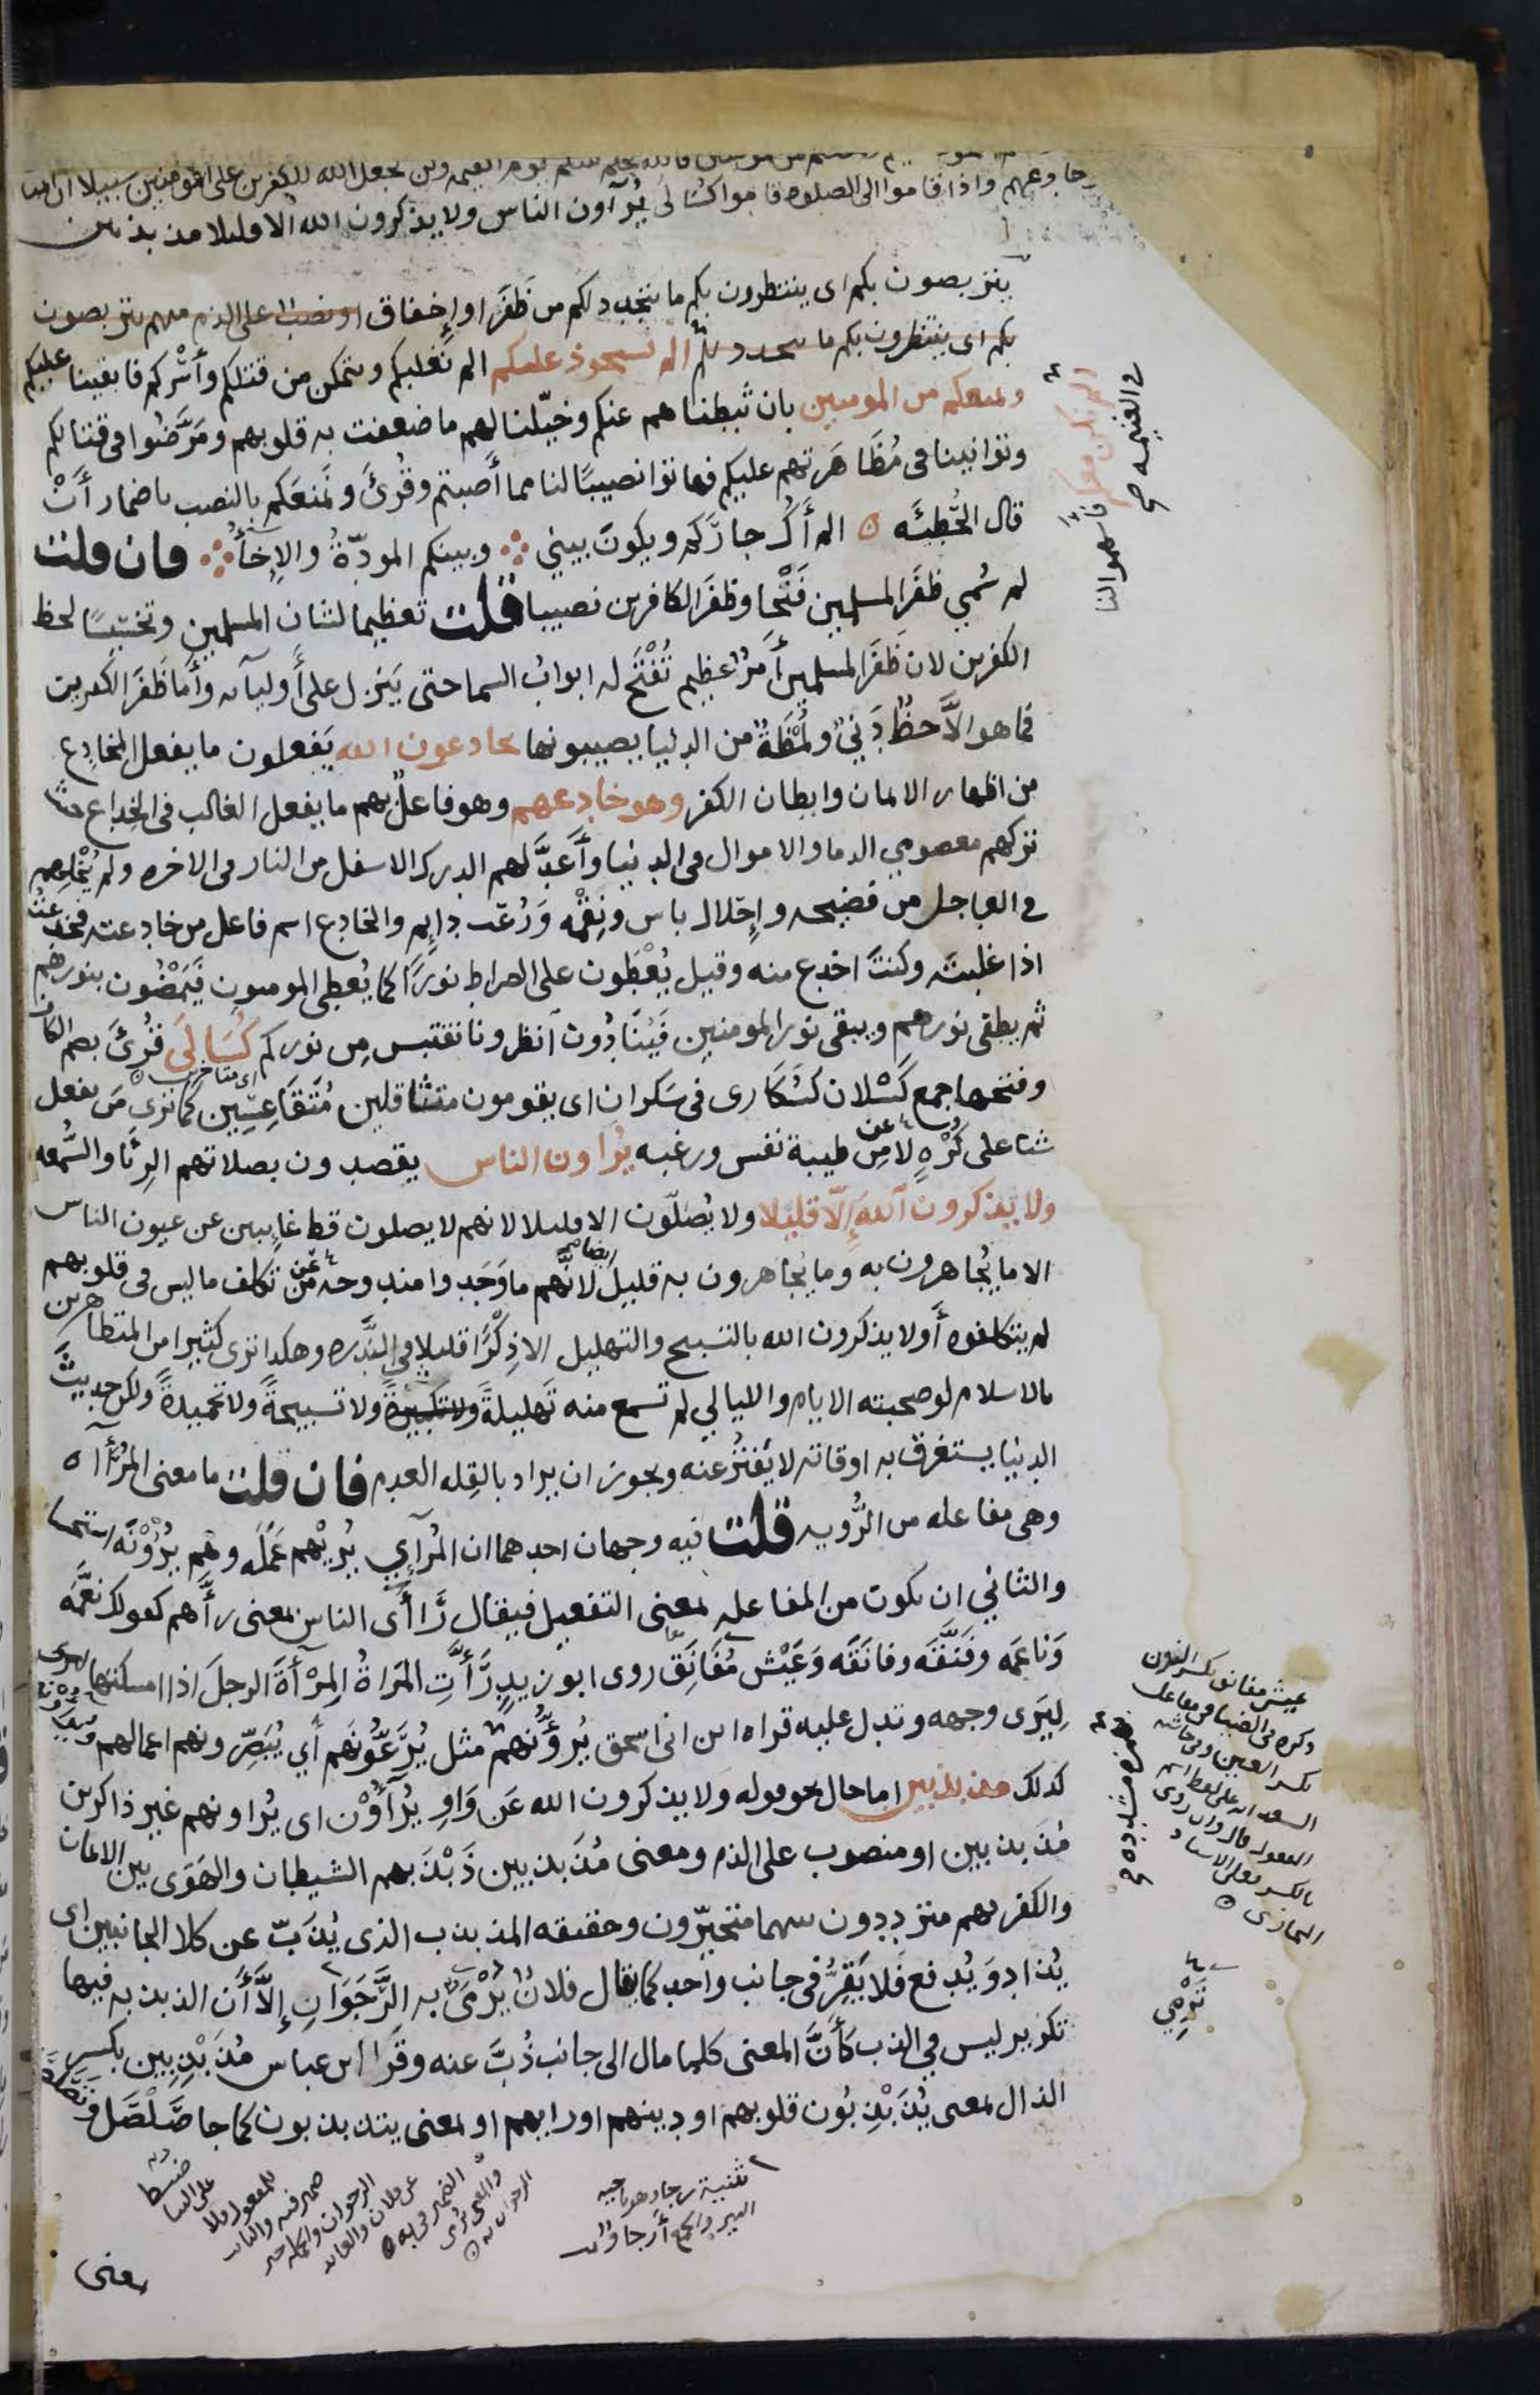 يوم القيمه ولن يجعل الله للكفرين على المومنين سبيلا ان المنا
وإذا قاموا الى الصلوه قاموا كسالى يُرآون الناس ولا يذكرون الله الا قليلا مذبذبين
يتربصون بكم اى ينتظرون بكم ما يتجدد لكم من ظَفَر او إخفاق او نصب على الذم منهم يتربصون
بكم اى ينتظرون بكم ما يتجدد لكم الم نستحوذ عليكم الم نَغلبكم ونتمكن من قتلكم وأَسْركم فابقينا عليكم
ونمنعكم من المومنين بان ثبطناهم عنكم وخيّلنا لهم ما ضعفت به قلوبهم ومَرَّضُوا فى قتالكم
وتوانينا فى مُظَاهَرتهم عليكم فهاتوا نصيبًا لنا مما أَصبتم وقُرِئَ ونَمنعَكم بالنصب باضمار أَنْ
قال الحُطيئَه ۞ الم أَكُ جارَكم ويكونَ بيني ∴ وبينكم المودّةُ والإخأُ ∴ فان قلت
لم سُمي ظفَر المسلمين فَتْحا وظفَر الكافرين نصيبا قلت تعظيما لشان المسلمين وتخسيسًا لحظ
الكفرين لان ظَفَر المسلمين أَمرٌ عظيم تُفْتَح له ابوابُ السما حتى يَنزل على أَوليآىه وأَما ظَفَر الكفرين
فما هو الَّا حظٌّ دَنيٌّ ولُمْظَةٌ من الدنيا يصيبونها يخادعون الله يَفعلون ما يفعل المخادِع
من اظهار الايمان وابطان الكفر وهو خادعهم وهو فاعلٌ بهم ما يفعل الغالب فى الخِداع حيث
تركهم معصومي الدما والاموال فى الدنيا وأَعَدَّ لهم الدرك الاسفل من النار فى الاخره ولم يُخْلِهم
في العاجل من فضيحه وإحلال باس ونِقْمه وَرُعب دايم والخادع اسم فاعل من خادعته فخدعتُه
اذا غلبتَه وكنتَ اخدع منه وقيل يُعْطَون على الصراط نورًا كما يُعطى المومنون فَيَمْضُون بنورهم
ثم يطفى نورهم ويبقى نور المومنين فَيُنَادُون انظرونا نقتبس مِن نوركم كُسَالَى قُرِئَ بضم الكاف
وفتحها جمع كَسْلان كسُكَارى فى سَكران اى يقومون متثاقلين مُتَقَاعِسِين كما ترى مَن يفعل
شيا على كُرْهٍ لا مِن طيبة نفس ورغبه يُرَاون الناس يقصدون بصلاتهم الرِئا والسُّمعه
ولا يذكرون اللهَ إلّا قليلا ولا يُصَلّون الا قليلا لانهم لا يصلون قط غايبين عن عيون الناس
الا ما يُجاهرون به وما يُجاهرون به قليل أيضا لانَّهم ما وَجَدوا مندوحه من تكلف ما ليس فى قلوبهم
لم يتكلفوه أَو لا يذكرون الله بالتسبيح والتهليل الا ذِكْرًا قليلا في النَّدره وهكذا ترى كثيرا من المتظاهرين
بالاسلام لو صحبته الايام والليالي لم تسمع منه تَهليلةً ولا تكبيرةً ولا تسبيحةً ولا تحميدةً ولكن حديثَ
الدنيا يستغرق به اوقاته لا يَفتُرُ عنه ويجوز ان يراد بالقِله العدم فان قلت ما معنى المُرَٰاَه
وهى مفاعله من الرُّويه قلت فيه وجهان احدهما ان المُرَآي يُريْهم عَمَله وهم يُرُوْنَه استحسا
والثاني ان يكون من المفاعله بمعنى التفعيل فيقال رَاأَى الناس بمعنى رأَّهم كقولك نعَّمَه
وَناعَمَه وفَنَّقَه وفانَقَه وَعَيْش مُفَانِق روى ابو زيدٍ رَأَّتِ المَراةُ المِرْأَةَ الرجلَ اذا امسكتها
لِيَرَى وجهه وتدل عليه قراه ابن ابى اسحق يُرَؤُّنَهم مثل يُرَعُّونَهم أَي يُبَصِّرونهم اعمالهم ويُرَآوُنهم
كذلك مذبذبين اما حال نحو قوله ولا يذكرون الله عَن وَاوِ يُرَآؤُن اى يُراونهم غير ذاكرين
مُذَبذبين او منصوب على الذم ومعنى مُذَبذبين ذَبْذَبهم الشيطان والهَوَى بين الايمان
والكفر فهم مترددون بينهما متحيّرون وحقيقه المذبذب الذى يُذَبّ عن كلا الجانبين اى
يُذاد وَيُدفع فَلا يَقِرُّ فى جانب واحد كما يقال فلانٌ يُرْمَى به الرَّجَوَانِ إلَّا أَن الذبذبه فيها
تكرير ليس في الذب كَأَنَّ المعنى كلما مال الى جانب ذُبَّ عنه وقَرا ابن عباس مُذَبْذِبِين بكسر
الذال بمعنى يُذَبْذِبُون قلوبهم او دينهم او رايهم او بمعنى يتذبذبون كما جا صَلْصَل
الم نكن معكم فاسهموا لنا
في الغنيمه صح
عيش مفانق بكسر النون
ذكره فى الضيا فى مفاعل
بكسر العين وفى حاشيه
بهمزه مشدده صح
تَرمِي
تثنية رجا وهو ناحيه
البير والجمع أَرجا
معنى